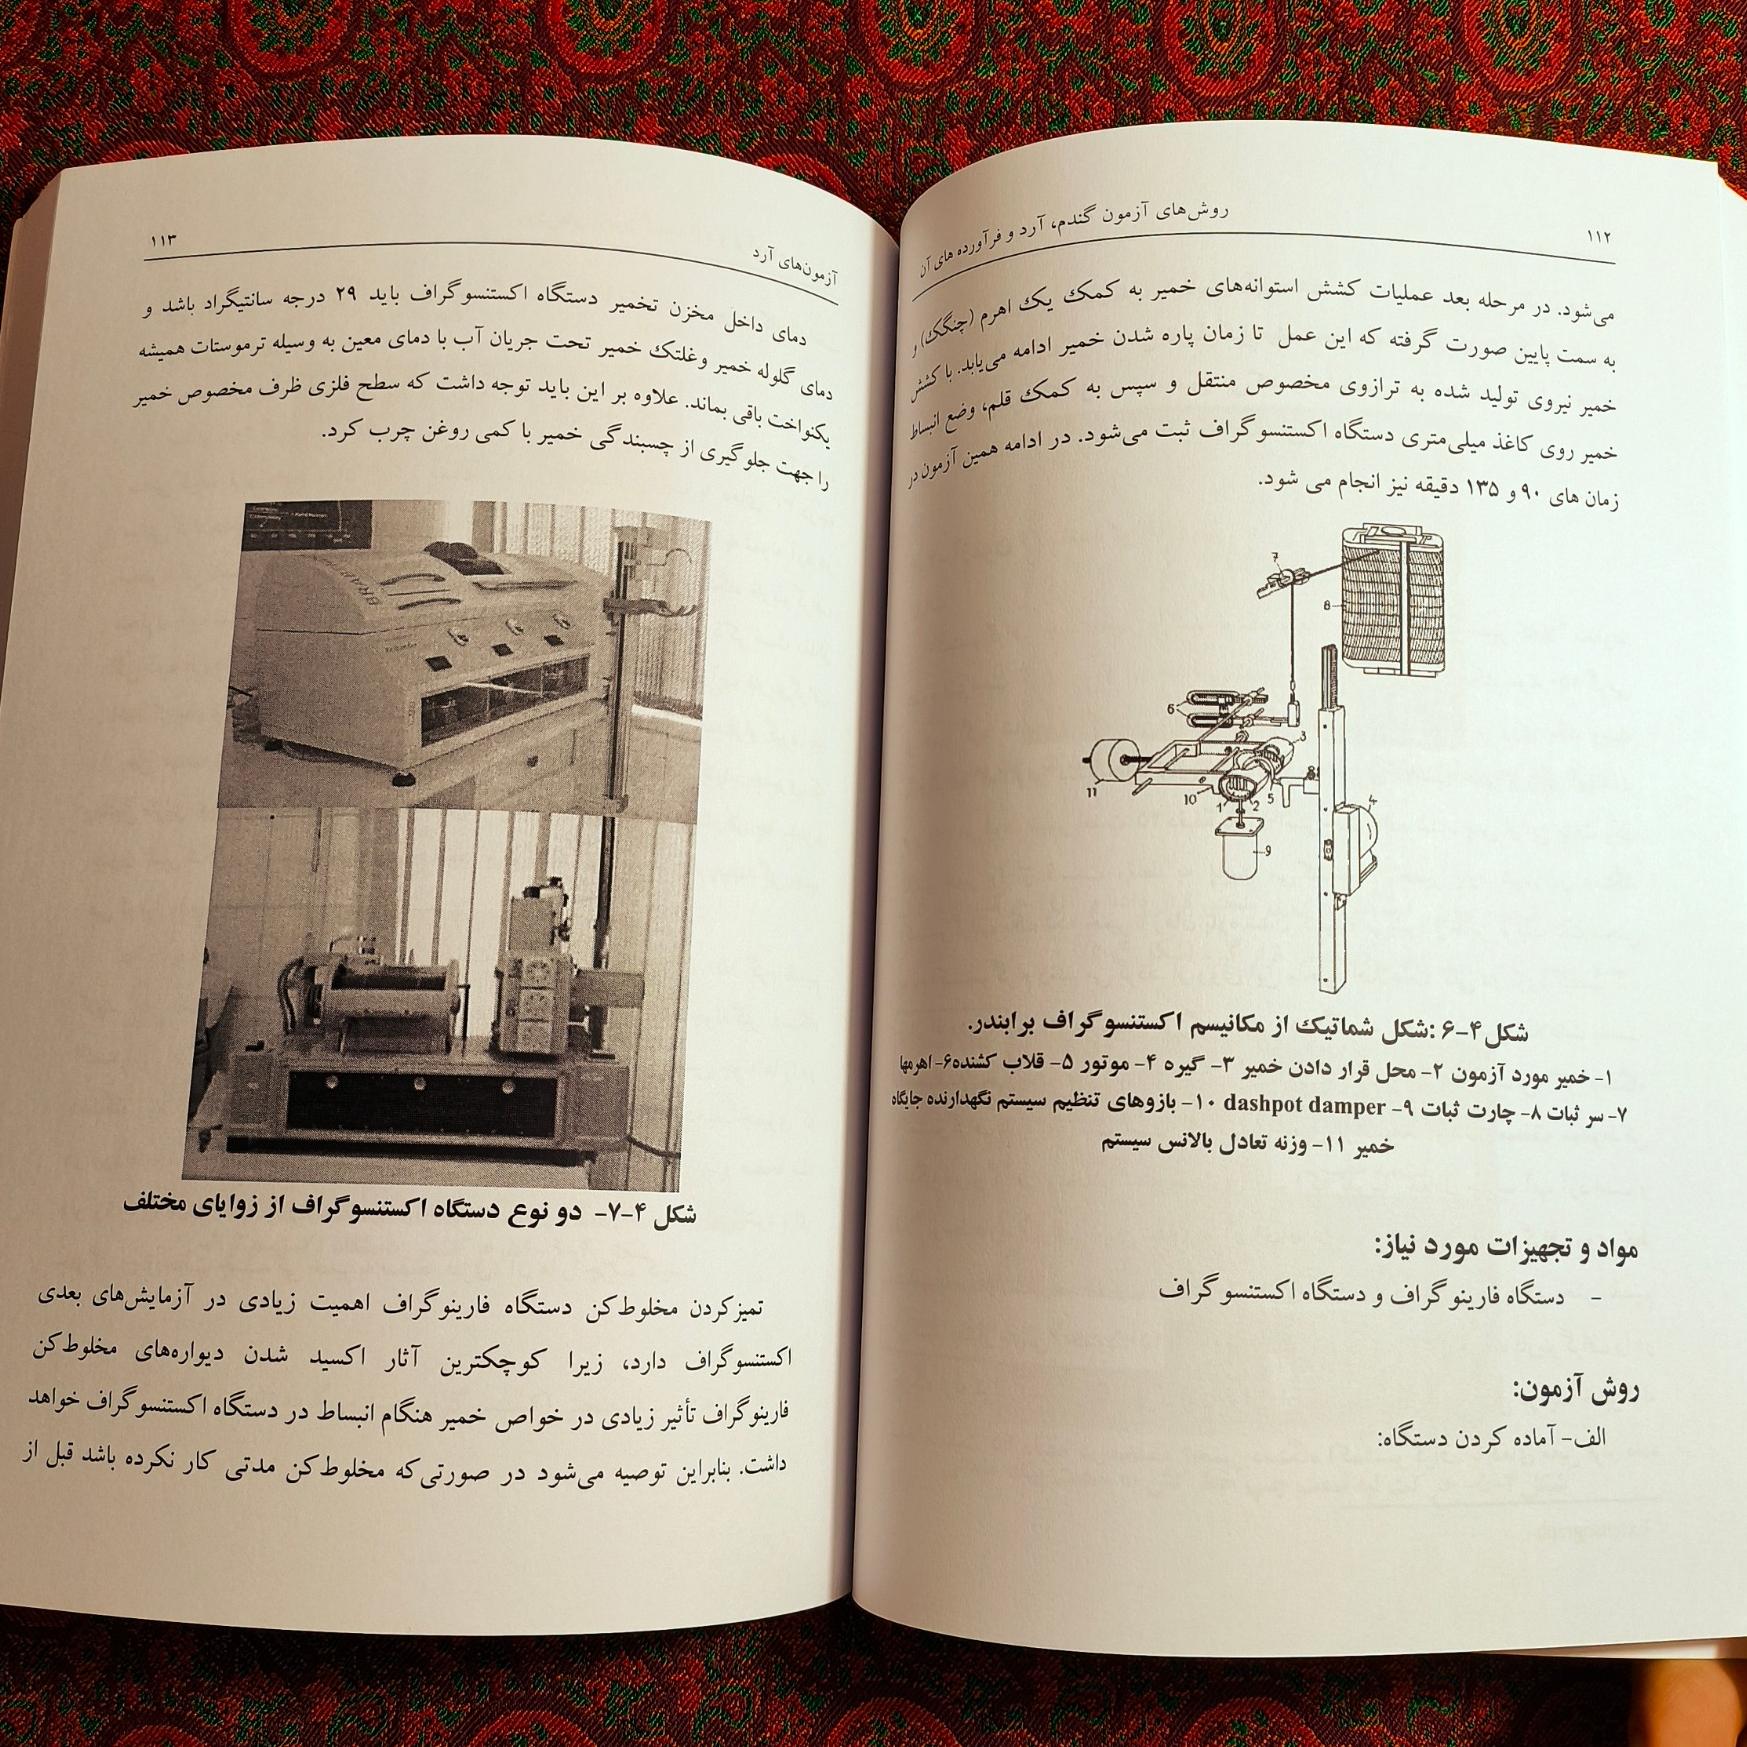 ۱۱۲
روش‌های آزمون گندم، آرد و فرآورده های آن
می‌شود. در مرحله بعد عملیات کشش استوانه‌های خمیر به کمک یک اهرم (چنگک) و
به سمت پایین صورت گرفته که این عمل تا زمان پاره شدن خمیر ادامه می‌یابد. با کشش
خمیر نیروی تولید شده به ترازوی مخصوص منتقل و سپس به کمک قلم، وضع انبساط
خمیر روی کاغذ میلی‌متری دستگاه اکستنسوگراف ثبت می‌شود. در ادامه همین آزمون در
زمان های ۹۰ و ۱۳۵ دقیقه نیز انجام می شود.
7
8
6
3
11
10
1
2
5
4
9
شکل۴-۶ :شکل شماتیک از مکانیسم اکستنسوگراف برابندر.
۱- خمیر مورد آزمون ۲- محل قرار دادن خمیر ۳- گیره ۴- موتور ۵- قلاب کشنده۶- اهرمها
۷- سر ثبات ۸- چارت ثبات ۹- dashpot damper ۱۰- بازوهای تنظیم سیستم نگهدارنده جایگاه
خمیر ۱۱- وزنه تعادل بالانس سیستم
مواد و تجهیزات مورد نیاز:
- دستگاه فارینوگراف و دستگاه اکستنسوگراف
روش آزمون:
الف- آماده کردن دستگاه:
آزمون‌های آرد
۱۱۳
دمای داخل مخزن تخمیر دستگاه اکستنسوگراف باید ۲۹ درجه سانتیگراد باشد و
دمای گلوله خمیر وغلتک خمیر تحت جریان آب با دمای معین به وسیله ترموستات همیشه
یکنواخت باقی بماند. علاوه بر این باید توجه داشت که سطح فلزی ظرف مخصوص خمیر
را جهت جلوگیری از چسبندگی خمیر با کمی روغن چرب کرد.
شکل ۴-۷- دو نوع دستگاه اکستنسوگراف از زوایای مختلف
تمیزکردن مخلوط‌کن دستگاه فارینوگراف اهمیت زیادی در آزمایش‌های بعدی
اکستنسوگراف دارد، زیرا کوچکترین آثار اکسید شدن دیواره‌های مخلوط‌کن
فارینوگراف تأثیر زیادی در خواص خمیر هنگام انبساط در دستگاه اکستنسوگراف خواهد
داشت. بنابراین توصیه می‌شود در صورتی‌که مخلوط‌کن مدتی کار نکرده باشد قبل از